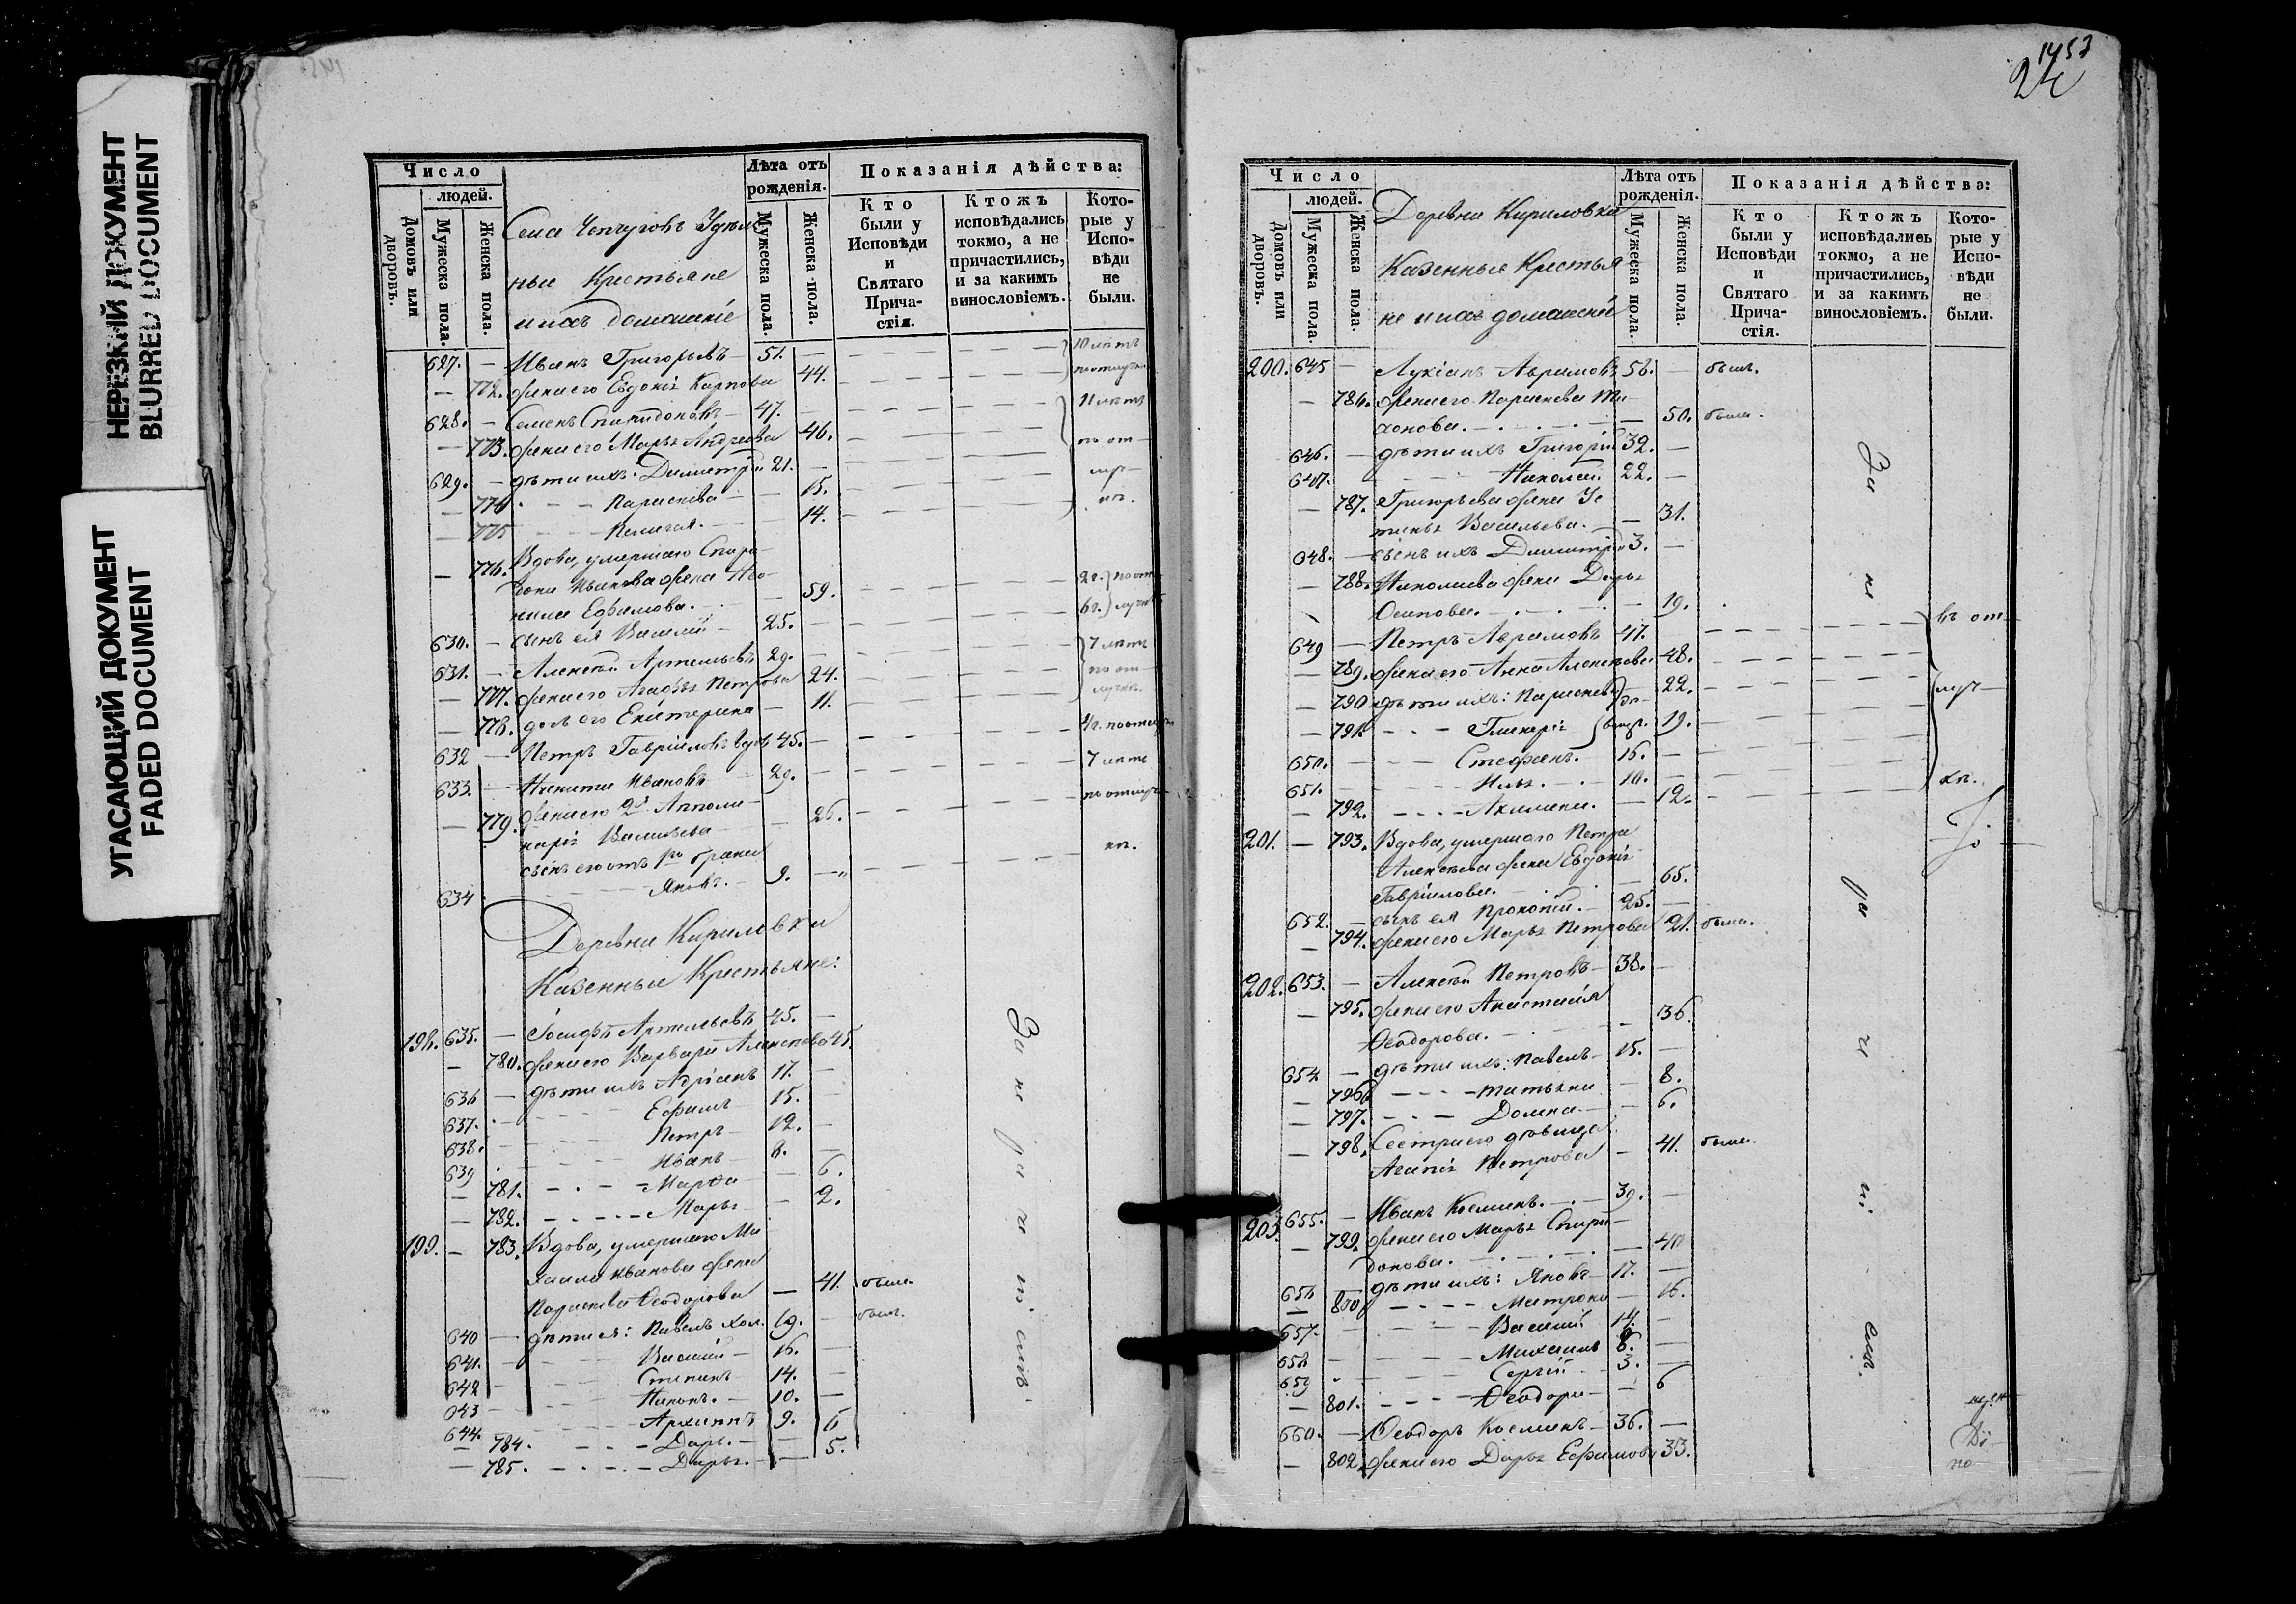 НЕРЕЗКИЙ ДОКУМЕНТ
BLURRED DOCUMENT
УГАСАЮЩИЙ ДОКУМЕНТ
FADED DOCUMENT
Число
людей.
Домовъ или дворовъ.
Мужеска пола.
Женска пола.
Села Чепчуговъ Удѣль
ные Крестьяне
и ихъ домашніе
Лѣта отъ рожденія.
Мужеска пола.
Женска пола.
Показанія дѣйства:
Кто были у Исповѣди и Святаго Причастія.
Ктожъ исповѣдались токмо, а не причастились, и за какимъ винословіемъ.
Которые у Исповѣди не были.
627. — Иванъ Григорьевъ — 51. — 10 лѣтъ
— 772. жена его Евдокія Карпова 44.
628. — Семенъ Спиридоновъ — 47. — 11 лѣтъ
— 773. жена его Марья Андреева 46. по от—
629. — дѣти ихъ: Димитрій 21. — луч—
— 774. Параскева — 15. кѣ.
— 775 Пелагея. — 14.
— 776. Вдова, умершаго Спири—
дона Иванова жена Нео—
нила Ефимова. — 59.
630. — сынъ ея Василій — 25. —
631. — Алексѣй Артемьевъ 29. — 7 лѣтъ
— 777. жена его Агафья Петрова 24. по от—
— 778. дочь его Екатерина — 11. лучкѣ.
632 — Петръ Гавриловъ вдовъ 45. —
633. — Никита Ивановъ — 29. — 7 лѣтъ
— 779. жена его 2я Апполи—
нарія Васильева — 26.
сынъ его отъ 1го брака кѣ.
634 — Яковъ. — 9. —
Деревни Кириловки
Казенные Крестьяне:
198. 635. — Іосифъ Артемьевъ 45. —
— 780. жена его Варвара Алексѣева 45.
636 — дѣти ихъ Адріанъ 17. —
637. Ефимъ 15. —
638. Петръ — 12. —
639 Иванъ — 8. —
— 781. — Марѳа — 6.
— 782. — Марья — 2.
199. — 783. Вдова, умершаго Ми
хаила Иванова жена
Параскева Ѳеодорова — 41. была.
640 — дѣти ея: Павелъ хол. 19. — былъ.
641. Василій — 16. —
642 Степанъ 14. —
643 Никонъ. — 10. —
644. Архиппъ 9.
— 784. — Дарья. — 6
— 785. — Дарья. — 5.
За нерачительствомъ.
1453
24
Число
людей.
Домовъ или дворовъ.
Мужеска пола.
Женска пола.
Деревни Кириловки
Казенные Крестья
не и ихъ домашніе
Лѣта отъ рожденія.
Мужеска пола.
Женска пола.
Показанія дѣйства:
Кто были у Исповѣди и Святаго Причастія.
Ктожъ исповѣдались токмо, а не причастились, и за какимъ винословіемъ.
Которые у Исповѣди не были.
200. 645 — Лукіанъ Аврамовъ 56. — былъ.
— 786. жена его Параскева Ти
хонова. — 50. была.
646. — дѣти ихъ Григорій 32. —
647. Николай 22. —
— 787. Григорьева жена Ус
тинья Васильева. — 31.
648. — сынъ ихъ Димитрій 3. —
— 788. Николаева жена Дарья
Осипова. — 19.
649 — Петръ Аврамовъ 47. въ от—
— 789. жена его Анна Алексѣева 48.
— 790 дѣти ихъ: Параскева 22. луч—
— 791. Гликерія 19.
650. — Стефанъ. 16. —
651. — Илья. — 10. — кѣ.
— 792. — Акилина. — 12.
201. — 793. Вдова, умершаго Петра
Алексѣева жена Евдокія
Гаврилова. — 65.
652. — сынъ ея Прокопій. — 25. —
— 794. жена его Марья Петрова 21. была.
202. 653. — Алексѣй Петровъ — 38. —
— 795. жена его Анастасія
Ѳеодорова. — 36.
654 — дѣти ихъ: Павелъ — 15. —
— 796 — Татьяна — 8.
— 797. — Домна — 6.
— 798. Сестра его дѣвица
Агапія Петрова — 41. была.
203. 655. — Иванъ Косминъ. — 39. —
— 799. жена его Марья Спири—
донова. — 40
656 — дѣти ихъ: Яковъ — 17. —
— 800 — Матрона — 16.
657. — Василій 14. —
658 — Михаилъ 8. —
659 — Сергій 3. —
— 801. — Ѳеодора — 6
660. — Ѳеодоръ Косминъ — 36. —
— 802. жена его Дарья Ефимова 33.